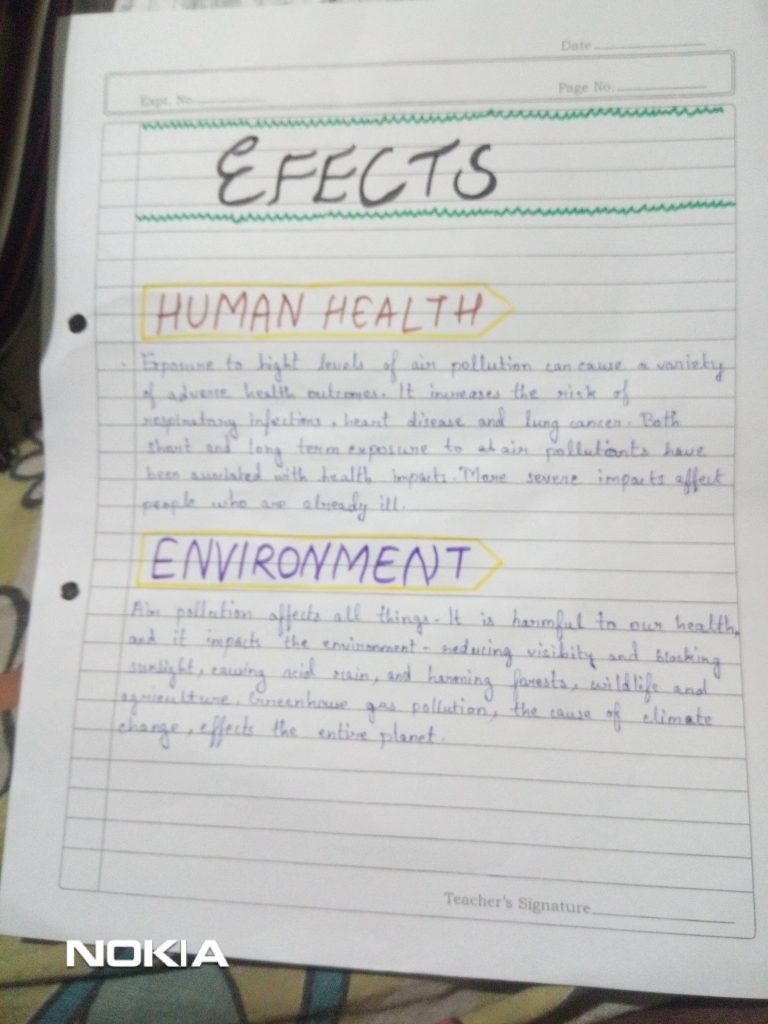 Date
Expt. No.
Page No.
EFECTS
HUMAN HEALTH
Exposure to hight levels of air pollution can cause a variety
of adverse health outcomes. It increases the risk of
respiratory infections, heart disease and lung cancer. Both
short and long term exposure to at air pollutants have
been associated with health impacts. More severe impacts affect
people who are already ill.
ENVIRONMENT
Air pollution affects all things. It is harmful to our health,
and it impacts the environment - reducing visibity and blocking
sunlight, causing acid rain, and harming forests, wildlife and
agriculture. Greenhouse gas pollution, the cause of climate
change, effects the entire planet.
Teacher's Signature
NOKIA